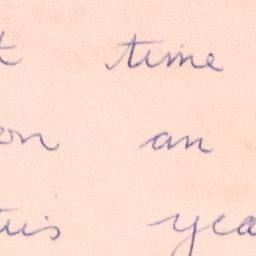 t time
on an
this yea